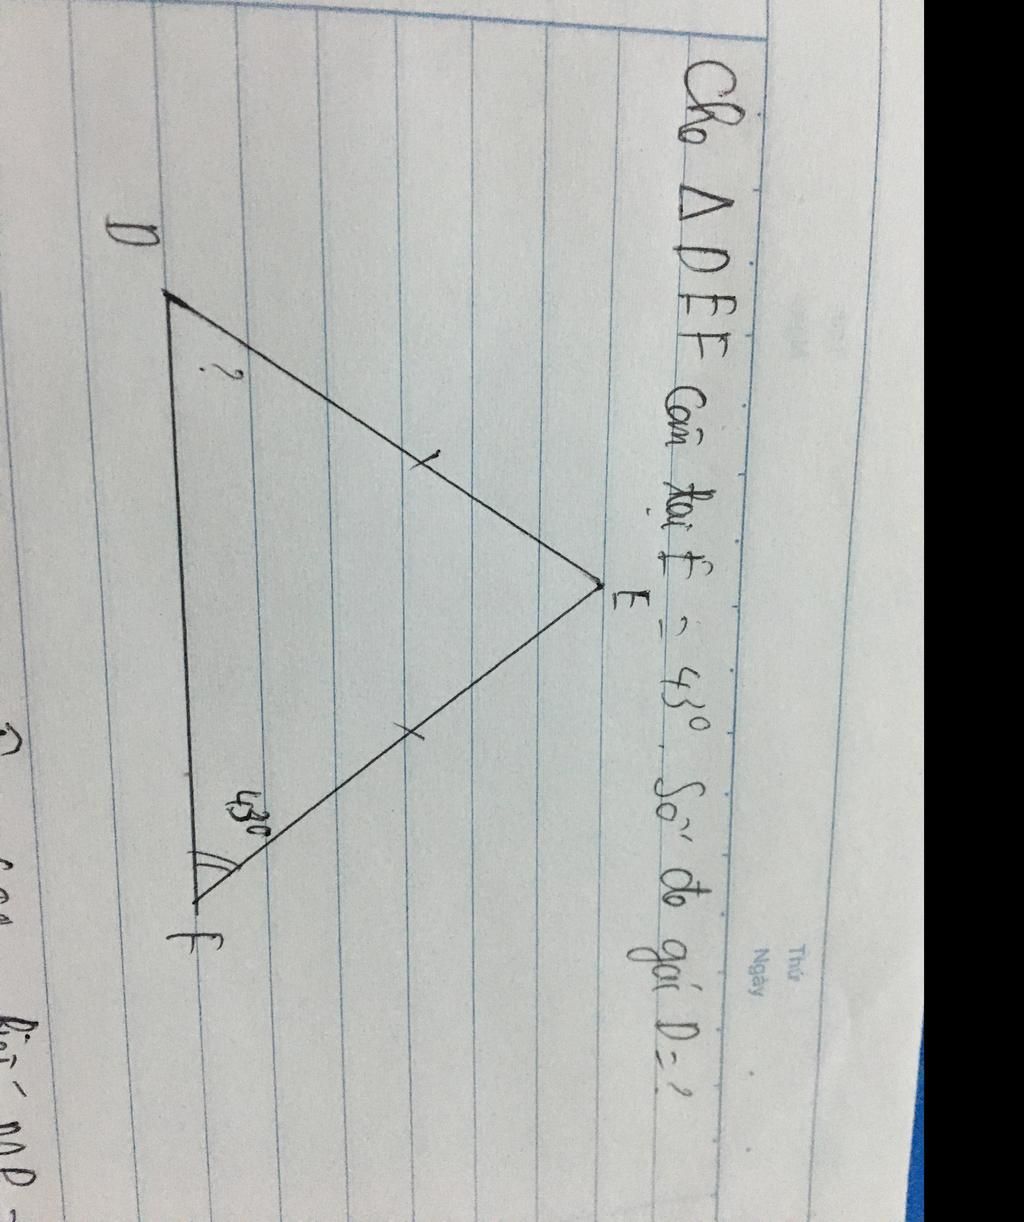 Thứ
Ngày
Cho Δ DEF cân tại F = 43° Số đo gói D = ?
E
D
?
43°
F